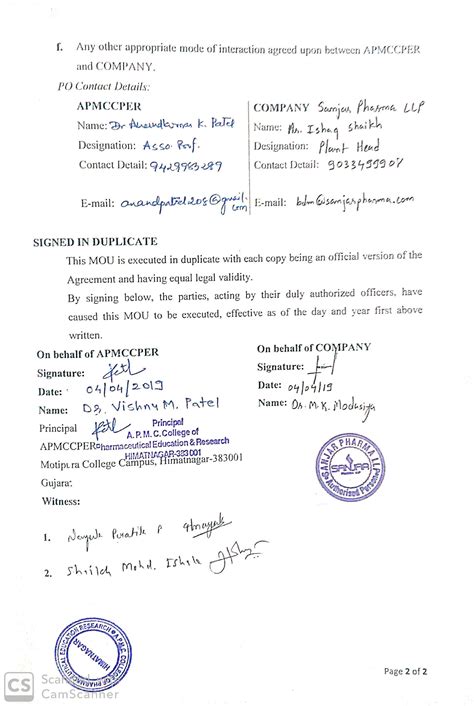 f. Any other appropriate mode of interaction agreed upon between APMCCPER
and COMPANY.
PO Contact Details:
APMCCPER
Name: Dr Anandkumar K. Patel
Designation: Asso. Prof.
Contact Detail: 9429983289
E-mail: anandpatel208@gmail.com
COMPANY Sanjar Pharma LLP
Name: Mr. Ishaq Shaikh
Designation: Plant Head
Contact Detail:
E-mail: bdm@sanjarpharma.com
SIGNED IN DUPLICATE
This MOU is executed in duplicate with each copy being an official version of the
Agreement and having equal legal validity.
By signing below, the parties, acting by their duly authorized officers, have
caused this MOU to be executed, effective as of the day and year first above
written.
On behalf of APMCCPER
Signature:
Date: 04/04/2019
Name: Dr. Vishnu M. Patel
Principal
Principal
A.P.M.C. College of
APMCCPER Pharmaceutical Education & Research
HIMATNAGAR-383 001
Motipura College Campus, Himatnagar-383001
Gujarat
On behalf of COMPANY
Signature:
Date: 04/04/19
Name: Dr. M.K. Modasiya
SANJAR PHARMA LLP
SANJAR
Authorised Personel
Witness:
1. Nayak Pratik P
2. Shaikh Mohd. Ishak
A.P.M.C. COLLEGE OF PHARMACEUTICAL EDUCATION RESEARCH
HIMATNAGAR
Page 2 of 2
CS
CamScanner